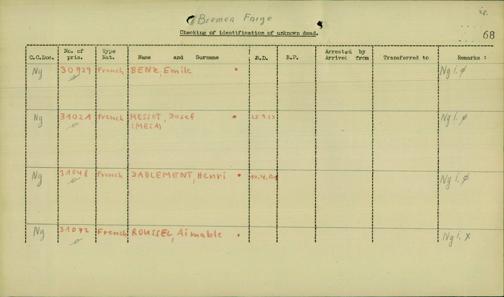 Bremen Farge
Checking of identification of unknown dead.
68
C.C.Doc. No. of pris. Type Nat. Name and Surname B.D. B.P. Arrested by Arrived from Transferred to Remarks :
Ng 30929 French BENZ, Emile Ng i. ø
Ng 31021 French MESSOT, Josef Ng i. ø
(MESA)
Ng French DABLEMENT, Henri Ng i. ø
Ng 31072 French ROUSSEL, Aimable Ng i. x